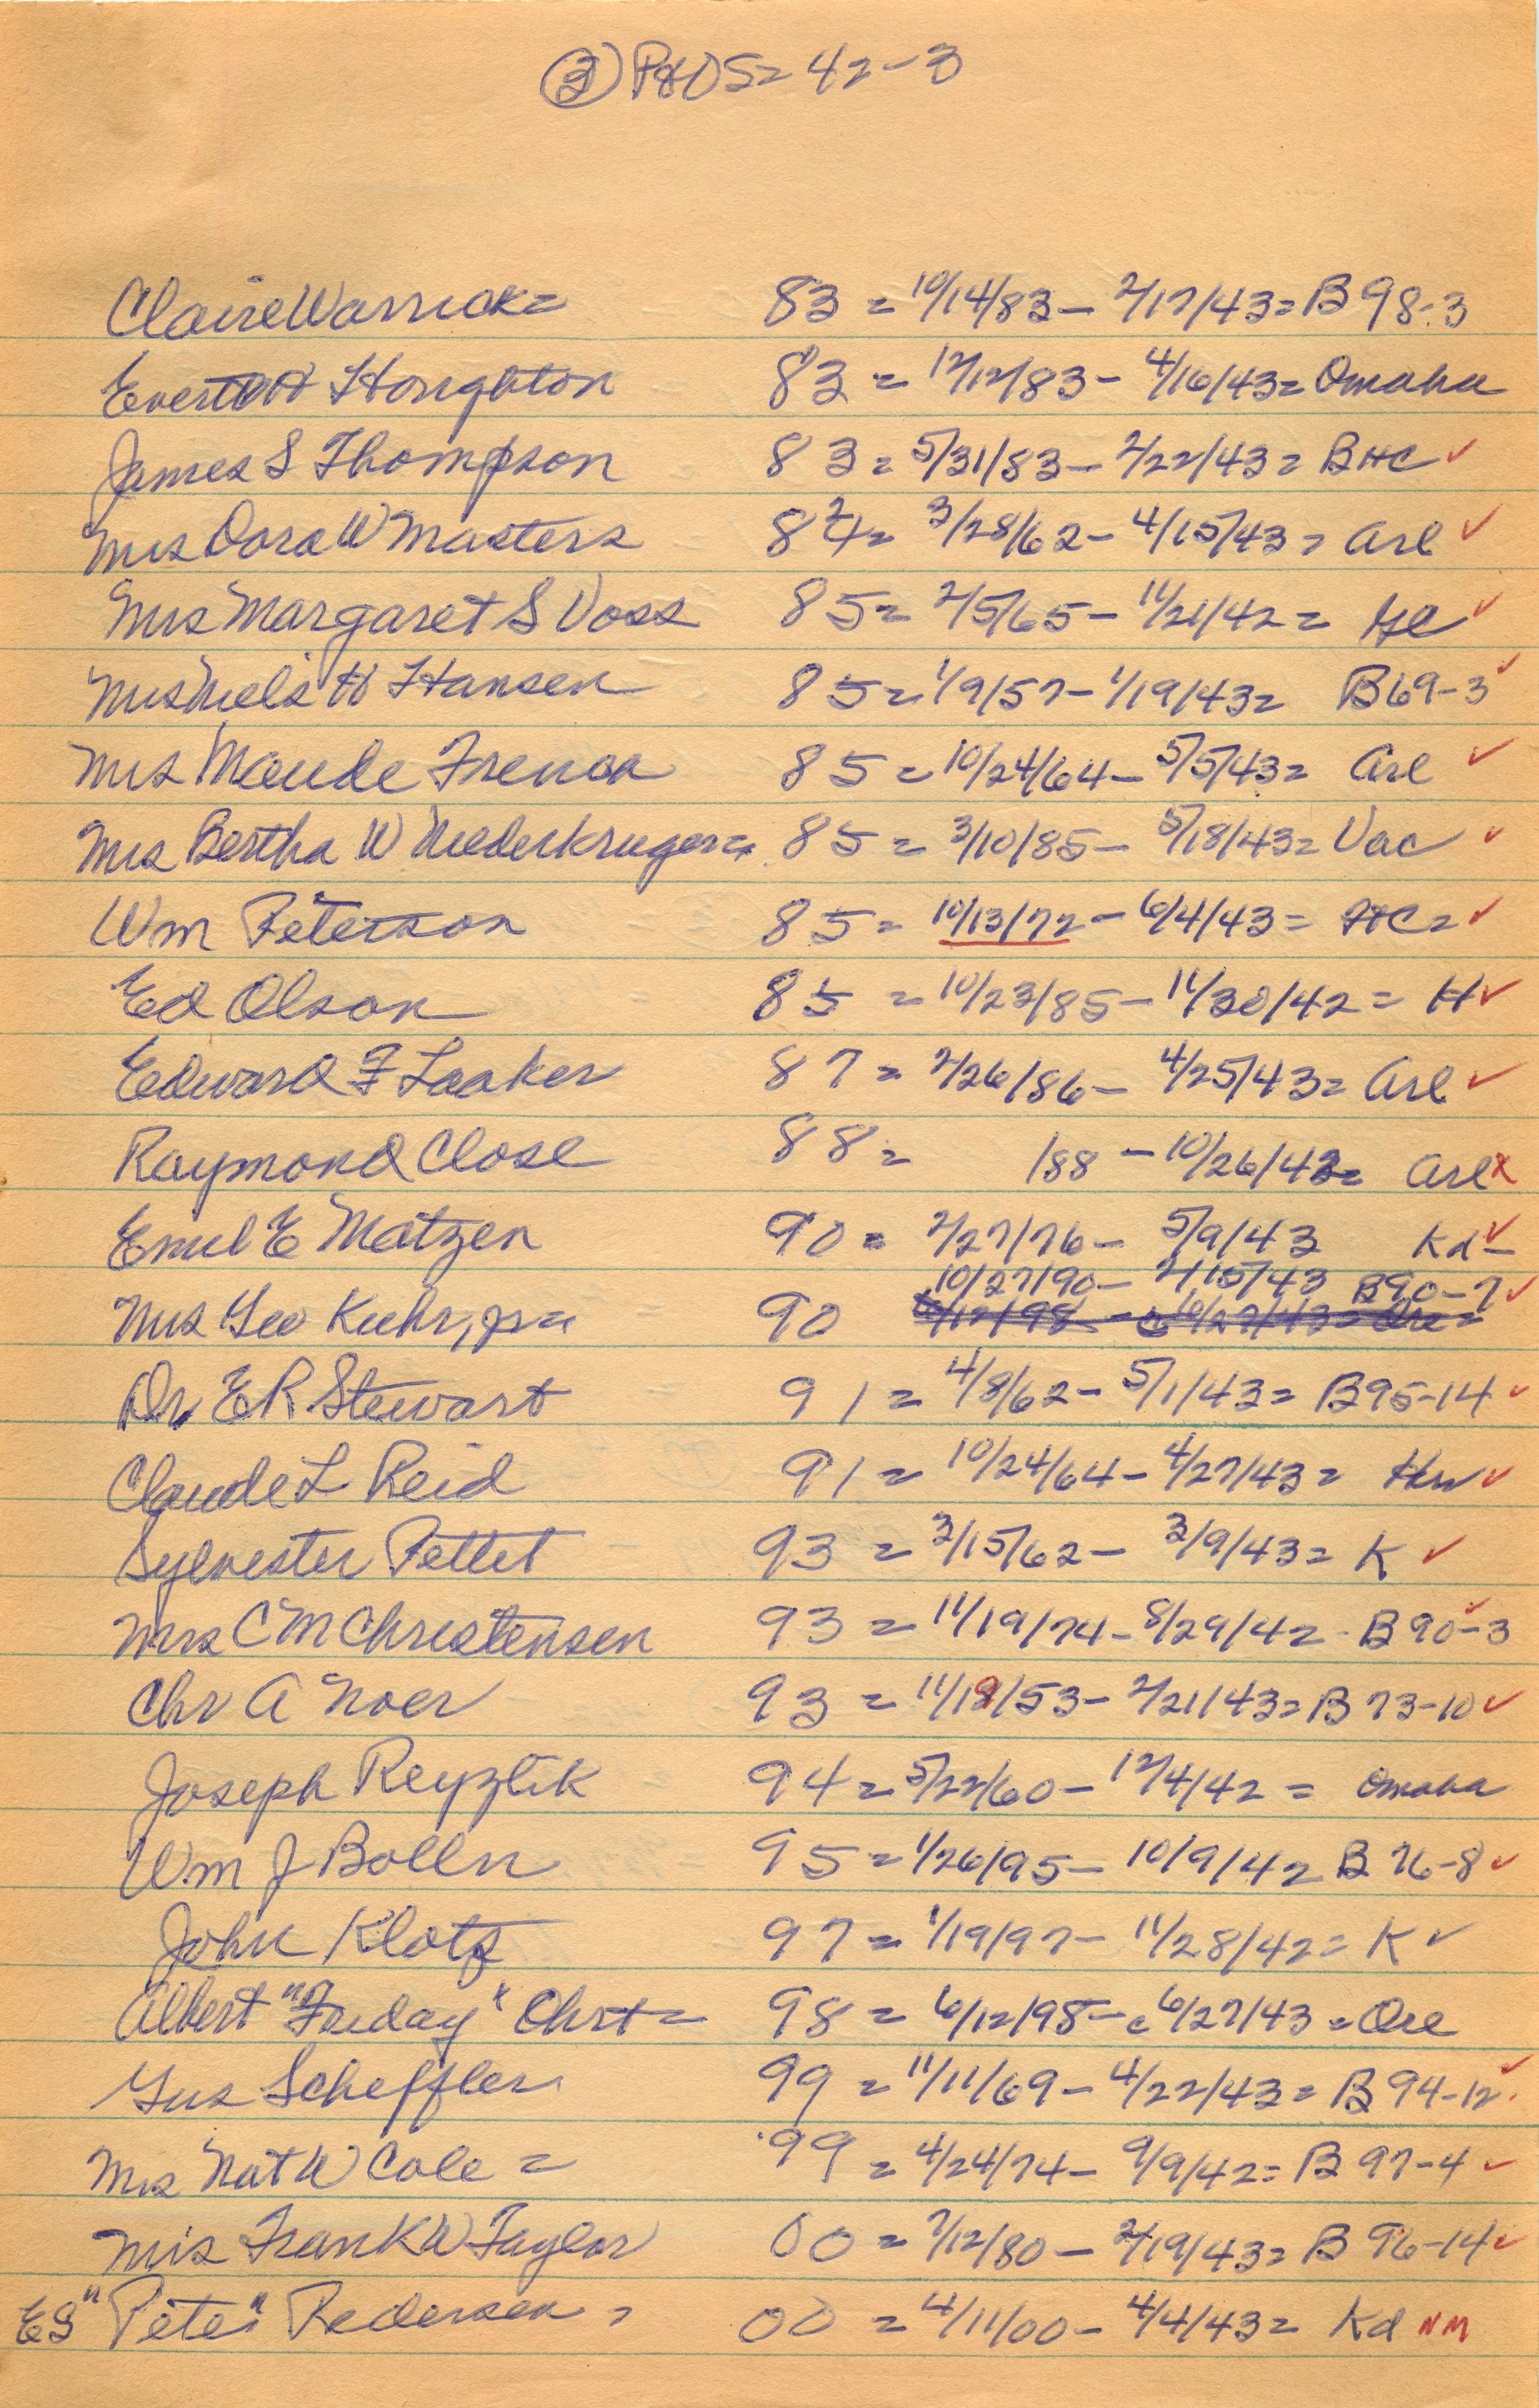 ③ P&OS= 42-3
Claire Warrick= 83 = 10/14/83- 2/17/43= B 98-3
Everett H Houghton 83 = 12/12/83- 4/16/43= Omaha
James S Thompson 83= 5/31/83- 2/22/43= BHC ✓
Mrs Dora W Masters 84= 3/28/62- 4/15/43= Arl ✓
Mrs Margaret S Voss 85= 2/5/65- 11/21/42= ✓
Mrs Niels H Hansen 85= 1/9/57- 1/19/43= B69-3 ✓
Mrs Maude French 85= 10/24/64- 5/5/43= Arl ✓
Mrs Bertha W Niederkruger= 85= 3/10/85- 5/18/43= Vac ✓
Wm Peterson 85= 10/13/72- 6/4/43= HC= ✓
Ed Olson 85 = 10/23/85- 11/30/42= H ✓
Edward F Laaker 87= 2/26/86- 4/25/43= Arl ✓
Raymond Close 88= /88 -10/26/42= Arl x
Emil E Matzen 90= 2/27/76- 5/9/43 Kd- ✓
10/27/90- 2/15/43 B90-7 ✓
Mrs Geo Kuhr, Jr= 90 6/12/98 - c 6/27/43= Ore=
Dr. E R Stewart 91= 4/8/62- 5/1/43= B95-14 ✓
Claude L Reid 91= 10/24/64- 4/27/43= ✓
Sylvester Pettet 93 = 3/15/62- 3/9/43= K ✓
Mrs C M Christensen 93= 11/19/74- 8/29/42- B 90-3 ✓
Chr A Noer 93= 11/19/53- 2/21/43= B 73-10 ✓
Joseph Reyzlik 94= 5/22/60- 12/4/42= Omaha
Wm J Bolln 95= 1/26/95- 10/9/42 B 76-8 ✓
John Klotz 97= 1/19/97- 11/28/42= K ✓
Albert "Friday" Chrst= 98= 6/12/98- c 6/27/43= Ore
Gus Scheffler 99= 11/11/69- 4/22/43= B 94-12 ✓
Mrs Nat W Cole = 99= 4/24/74- 9/9/42= B 97-4 ✓
Mrs Frank W Taylor 00= 7/12/80- 2/19/43= B 96-14 ✓
ES "Pete" Pedersen = 00= 4/11/00- 4/4/43= Kd NM